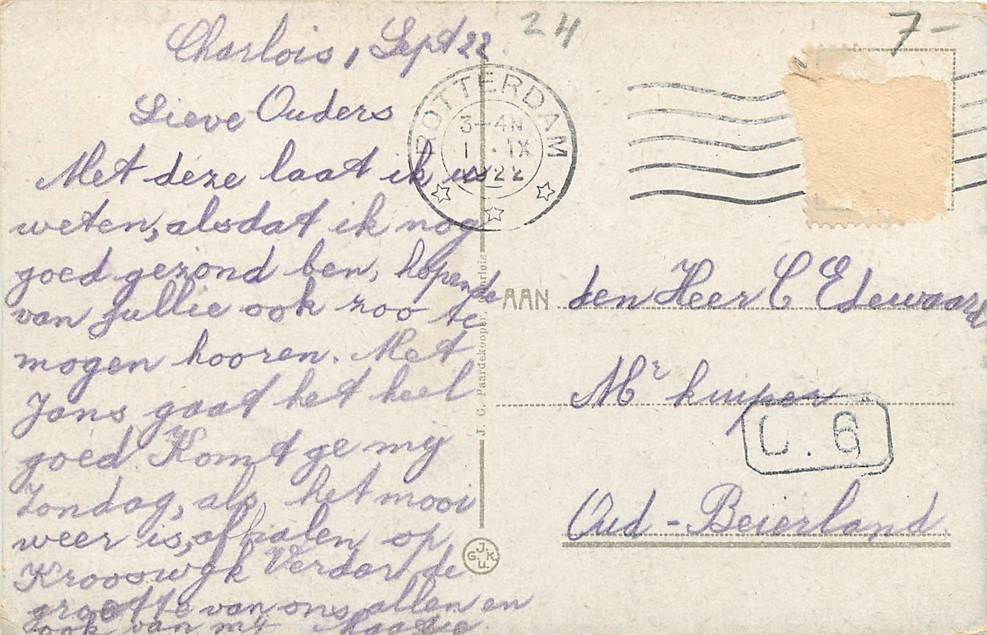 24
7-
Charlois, Sept 22.
Lieve Ouders
Met deze laat ik u
weten, alsdat ik nog
goed gezond ben, hopende
van jullie ook zoo te
mogen hooren. Met
Jans gaat het heel
goed Komt ge mij
Zondag, als het mooi
weer is, afhalen op
Krooswijk Verder de
groette van ons allen en
ook van mij Maatje
ROTTERDAM
3-4N
IX
1922
J. C. Paardekooper, Charlois
J. G. K. U.
AAN den Heer C Edewaard
Mr kuiper
C. 6
Oud-Beierland